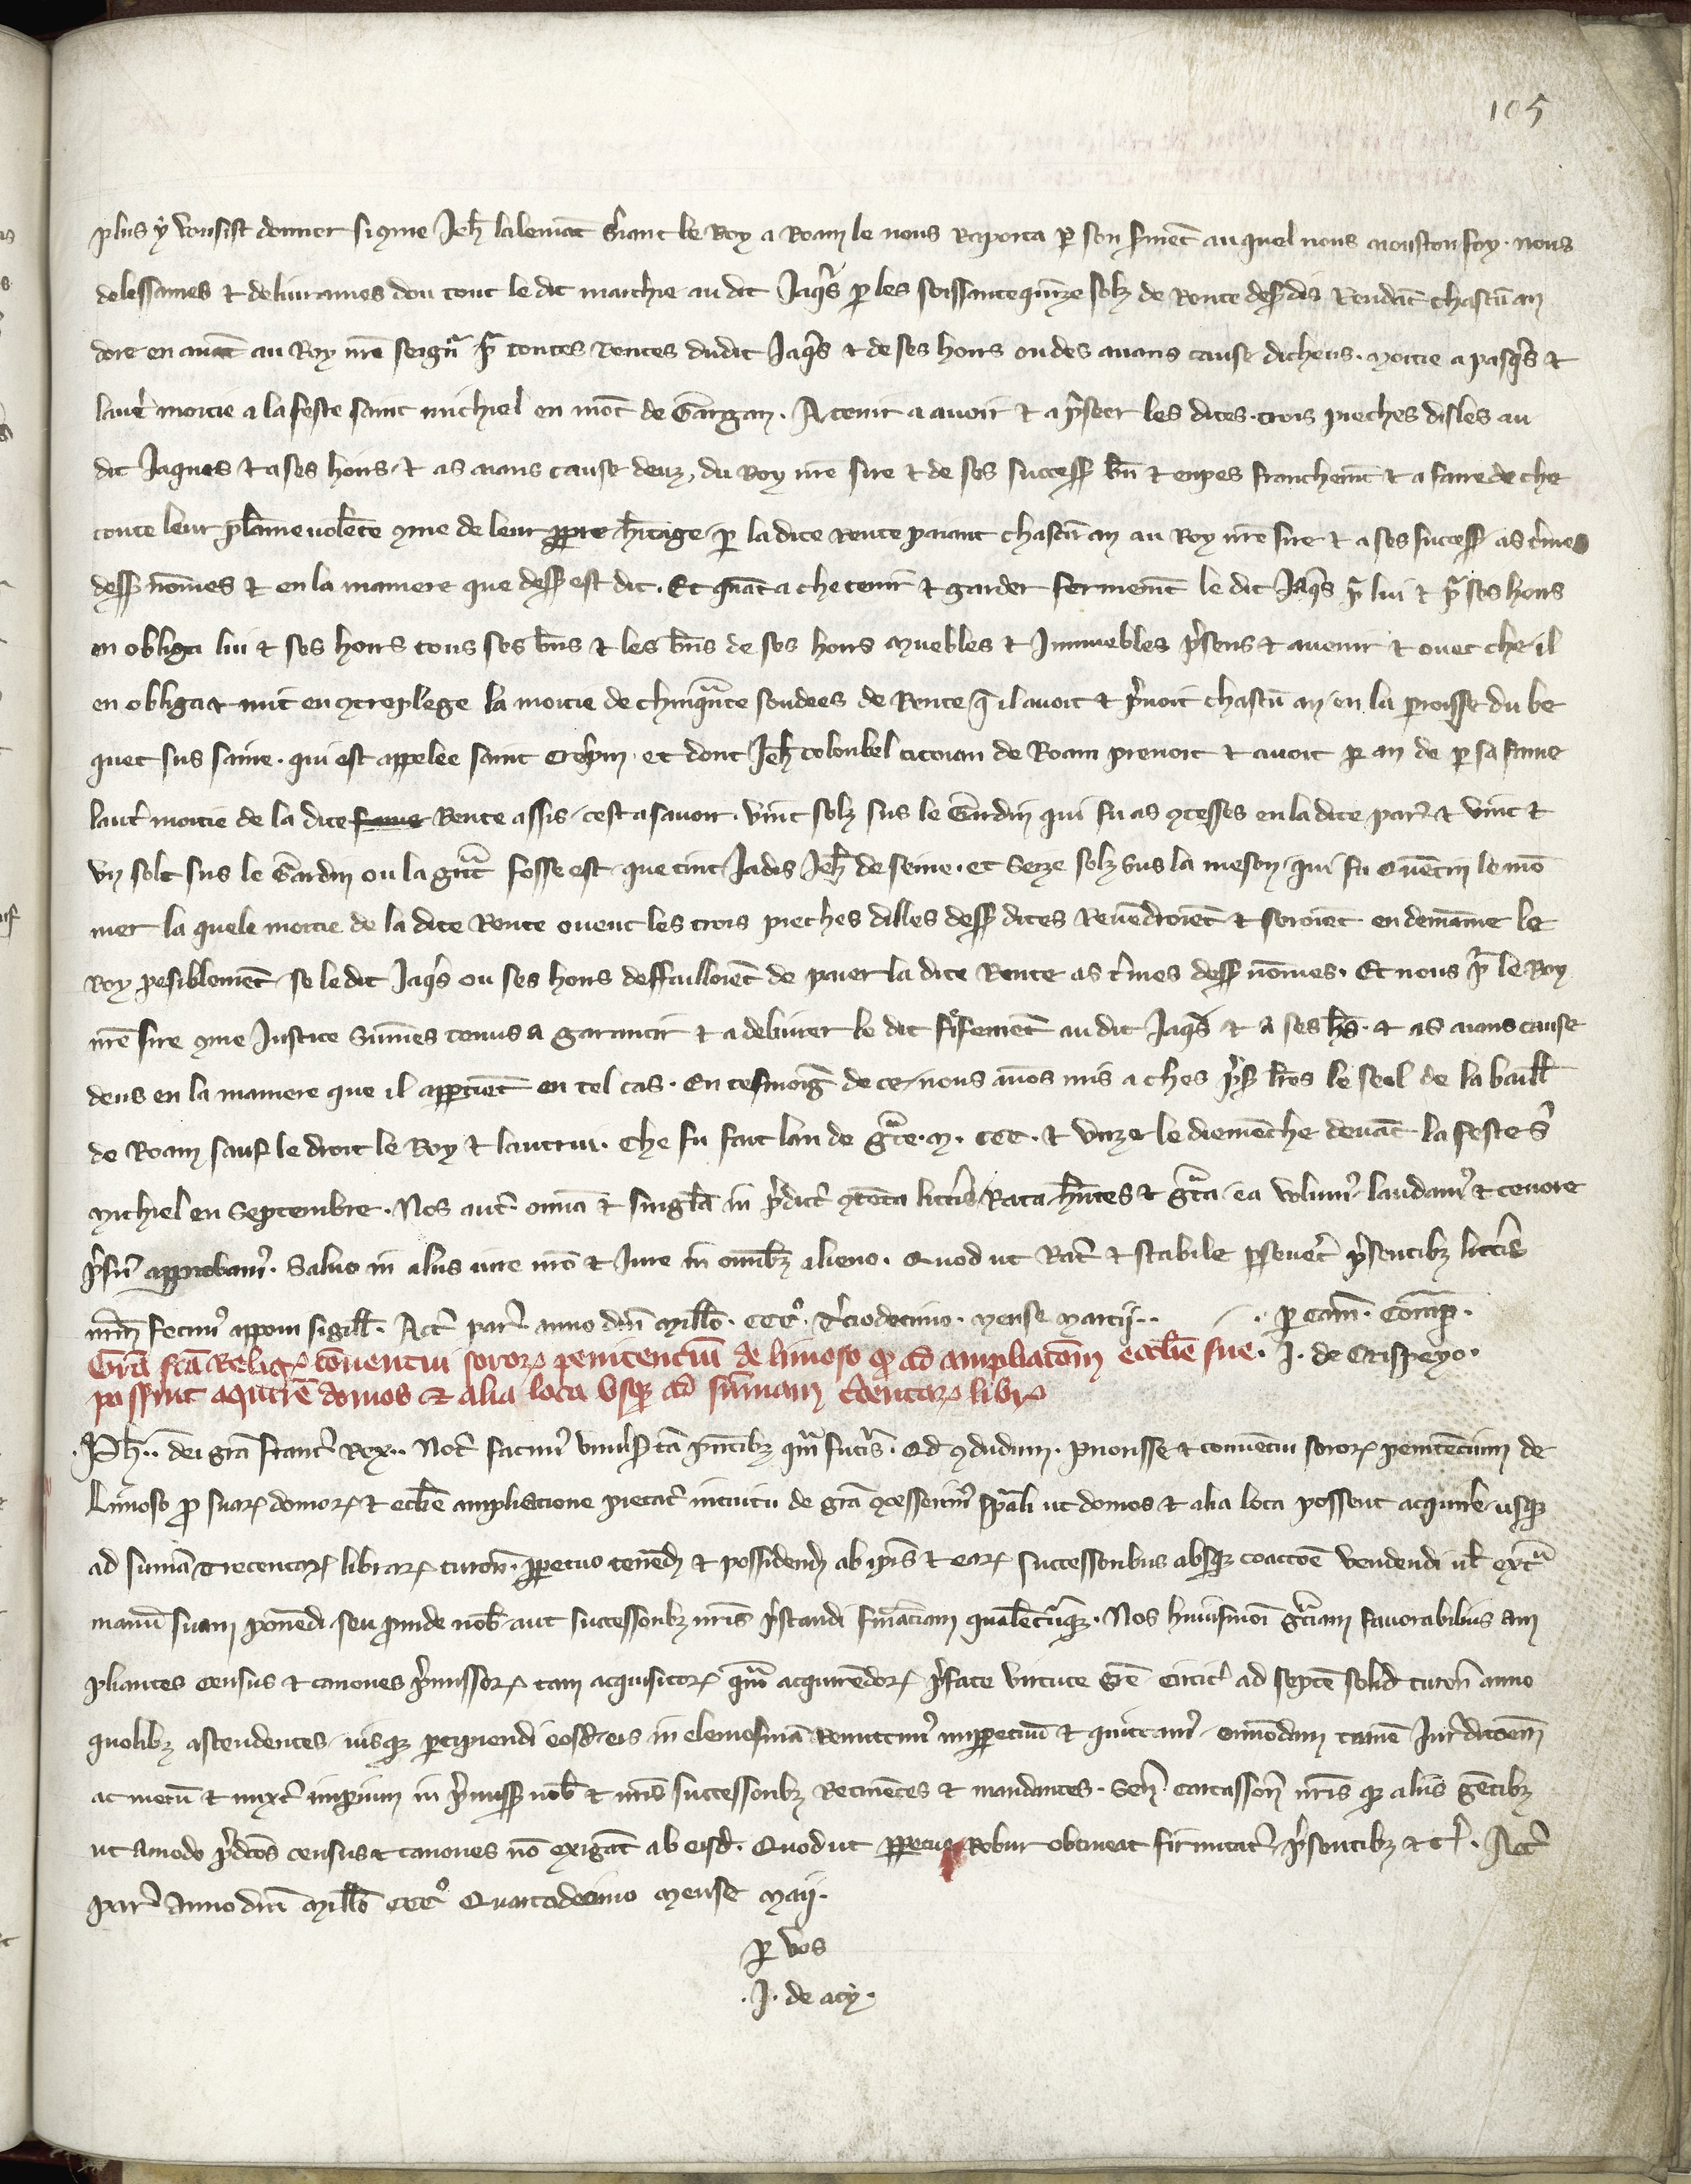 105
plus y vousist donner si 9me Jeh̄ lalemāt s̾iant le Roy a Roam le nous raporta p son s̾met̄ au quel nous aiouston foy. nous
delessames et deliurames dou tout le dit marchie au dit Jaq̾s p les soissantequīze solz de Rente desꝰ dis Rendāt chascū an
dore en auāt au Roy nr̄e seign̾r pͬ toutes Rentes dudit Jaq̾s et de ses hoirs ou des aians cause dicheus. moitie a pasq̾s et
laut̾ moitie a la feste saint michiel en mōt de Gargan. A tenir a auoir et a p̾seer les dites trois pieches disles au
dit Jaques et a ses hoirs et as aians cause deuz, du Roy nr̄e sire et de ses success̄ bn̄ et enpes franchem̄t et a faire de che
toute leur plaīne volēte 9me de leur ppre h̾itage p la dite rente paiant chascū an au Roy nr̄e sire et a ses success̄ as t̾mes
dess̄ nōmes et en la maniere que dess̄ est dit. Et quāt a che tenir et garder fermem̄t le dit Jaq̾s pͬ lui et pͬ ses hoirs
en obliga lui et ses hoirs tous ses bn̄s et les bn̄s de ses hoirs muebles et Immuebles p̾sens et auenir et ouec che il
en obliga et mit en 9treplege la moitie de chinquāte soudees de Rente q̄ il auoit et p̾noit chascū an en la paroisse du be
quet sus saine. qui est appelee saint Crespin. et dont Jeh̄ colonbel citoian de Roam prenoit et auoit p an de p sa fame
laut̾ moitie de la dite fame Rente assis cest a sauoir. vint solz sus le Gardin qui fu as 9tesses en la dite par̾ et vint et
vn solt sus le Gardin ou la gn̄t fosse est que tint Jadis Jeh̄ de seine. et Seze solz sus la meson qui fu Quētin le mō
nier la quele moitie de la dite Rente ouent les trois pieches dilles dess̄ dites Reuēdroiēt et seroiēt en demāine le
Roy pesiblemēt se le dit Jaq̾s ou ses hoirs deffailloiēt de paier la dite Rente as t̾mes dess̄ nōmes. Et nous pͬ le Roy
nr̄e sire 9me Justice Sūmes tenus a garantir et a deliurer le dit fifemēt au dit Jaq̾s et a ses hs̄. et as aians cause
deus en la maniere que il apptiēt en tel cas. En tesmoiḡ de ce nous auōs mis a ches p̾s̄ lr̄es le seel de la baill̄
de Roam sauf le droit le Roy et lautrui. Che fu fait lan de gr̄ce. M. CCC. et vnze le diemēche deuāt la feste s̾
Michiel en Septembre. Nos aut̾ omīa et singl̄a in p̾dict̾ 9tēta litt̾is Rata hn̄tes et gr̄ta ea volum̾ laudam̾ et tenore
p̾sn̄ approbam̾. Saluo in aliis iure nr̄o et Jure in omībȝ alieno. Quod ut Rat̾ et stabile p̄seuet̾ p̾sentibȝ litt̾is
nr̄m fecim̾ apponi sigill̄. Act̾ par̾ anno dn̄i Mill̄o. CCC°. T̾ciodecimo. mense Marcij. . p Cam̄. Comp̄.
Gr̄a fc̄a Religꝝ conuentui sororꝝ penitenciū de limoso ꝓ ad ampliatōem eccl̄ie sue. J. de Crispeyo.
possint aquir̾e domos et alia loca vsqȝ ad sūmam T̾centaꝝ libꝝ
Ph̄.. dei gr̄a franc̾ Rex.. Not̾ facim̾ vniu̾s̄ tā p̾ntibȝ qm̄ futur̾is. Qd 9dudum. priorisse et conuētui sororꝝ penitēcium de
Limoso ꝓ suaꝝ domoꝝ et eccl̄ie ampliacione pietat̾ intuitu de gr̄a 9cesserim̾ sp̄ali ut domos et alia loca possent acquir̾e usqȝ
ad sumā trecentaꝝ libraꝝ turoñ. ppetuo tenēd̄ et possidend̄ ab ip̄is et eaꝝ successoribus absqȝ coactōe vendendi ul̄ ext̾
manū suam ponēdi seu ꝓinde nob̄ aut successoribȝ nr̄is p̾standi finātiam qualēcūqȝ. Nos huiusmoi gr̄ciam fauorabilius am
pliantes census et canones p̾missoꝝ tam acquisitoꝝ qm̄ acquirēdoꝝ p̾fate virtute gr̄e Circit̾ ad septē solid̄ turoñ anno
quolibȝ ascendentes iusqȝ p̄cipiendi eosd̄ eis in elemosinā Remittim̾ imppetuū et quittam̾ omīodam tamē Jur̾dicōem
ac merū et mixt̾ imp̄ium in p̾miss̄ nob̄ et nr̄is successoribȝ Retinētes et mandantes. Sen̄. Carcassoñ nr̄is qȝ aliis gētibȝ
ut amodo p̾dc̄os census et canones nō exigāt ab eisd̄. Quod ut ppetue Robur obtineat firmitat̾ p̾sentibȝ et c̾. Act̾
par̾ Anno dn̄i Mill̄o CCC° Quartodecimo mense Maij.
p vos
.J. de acy.